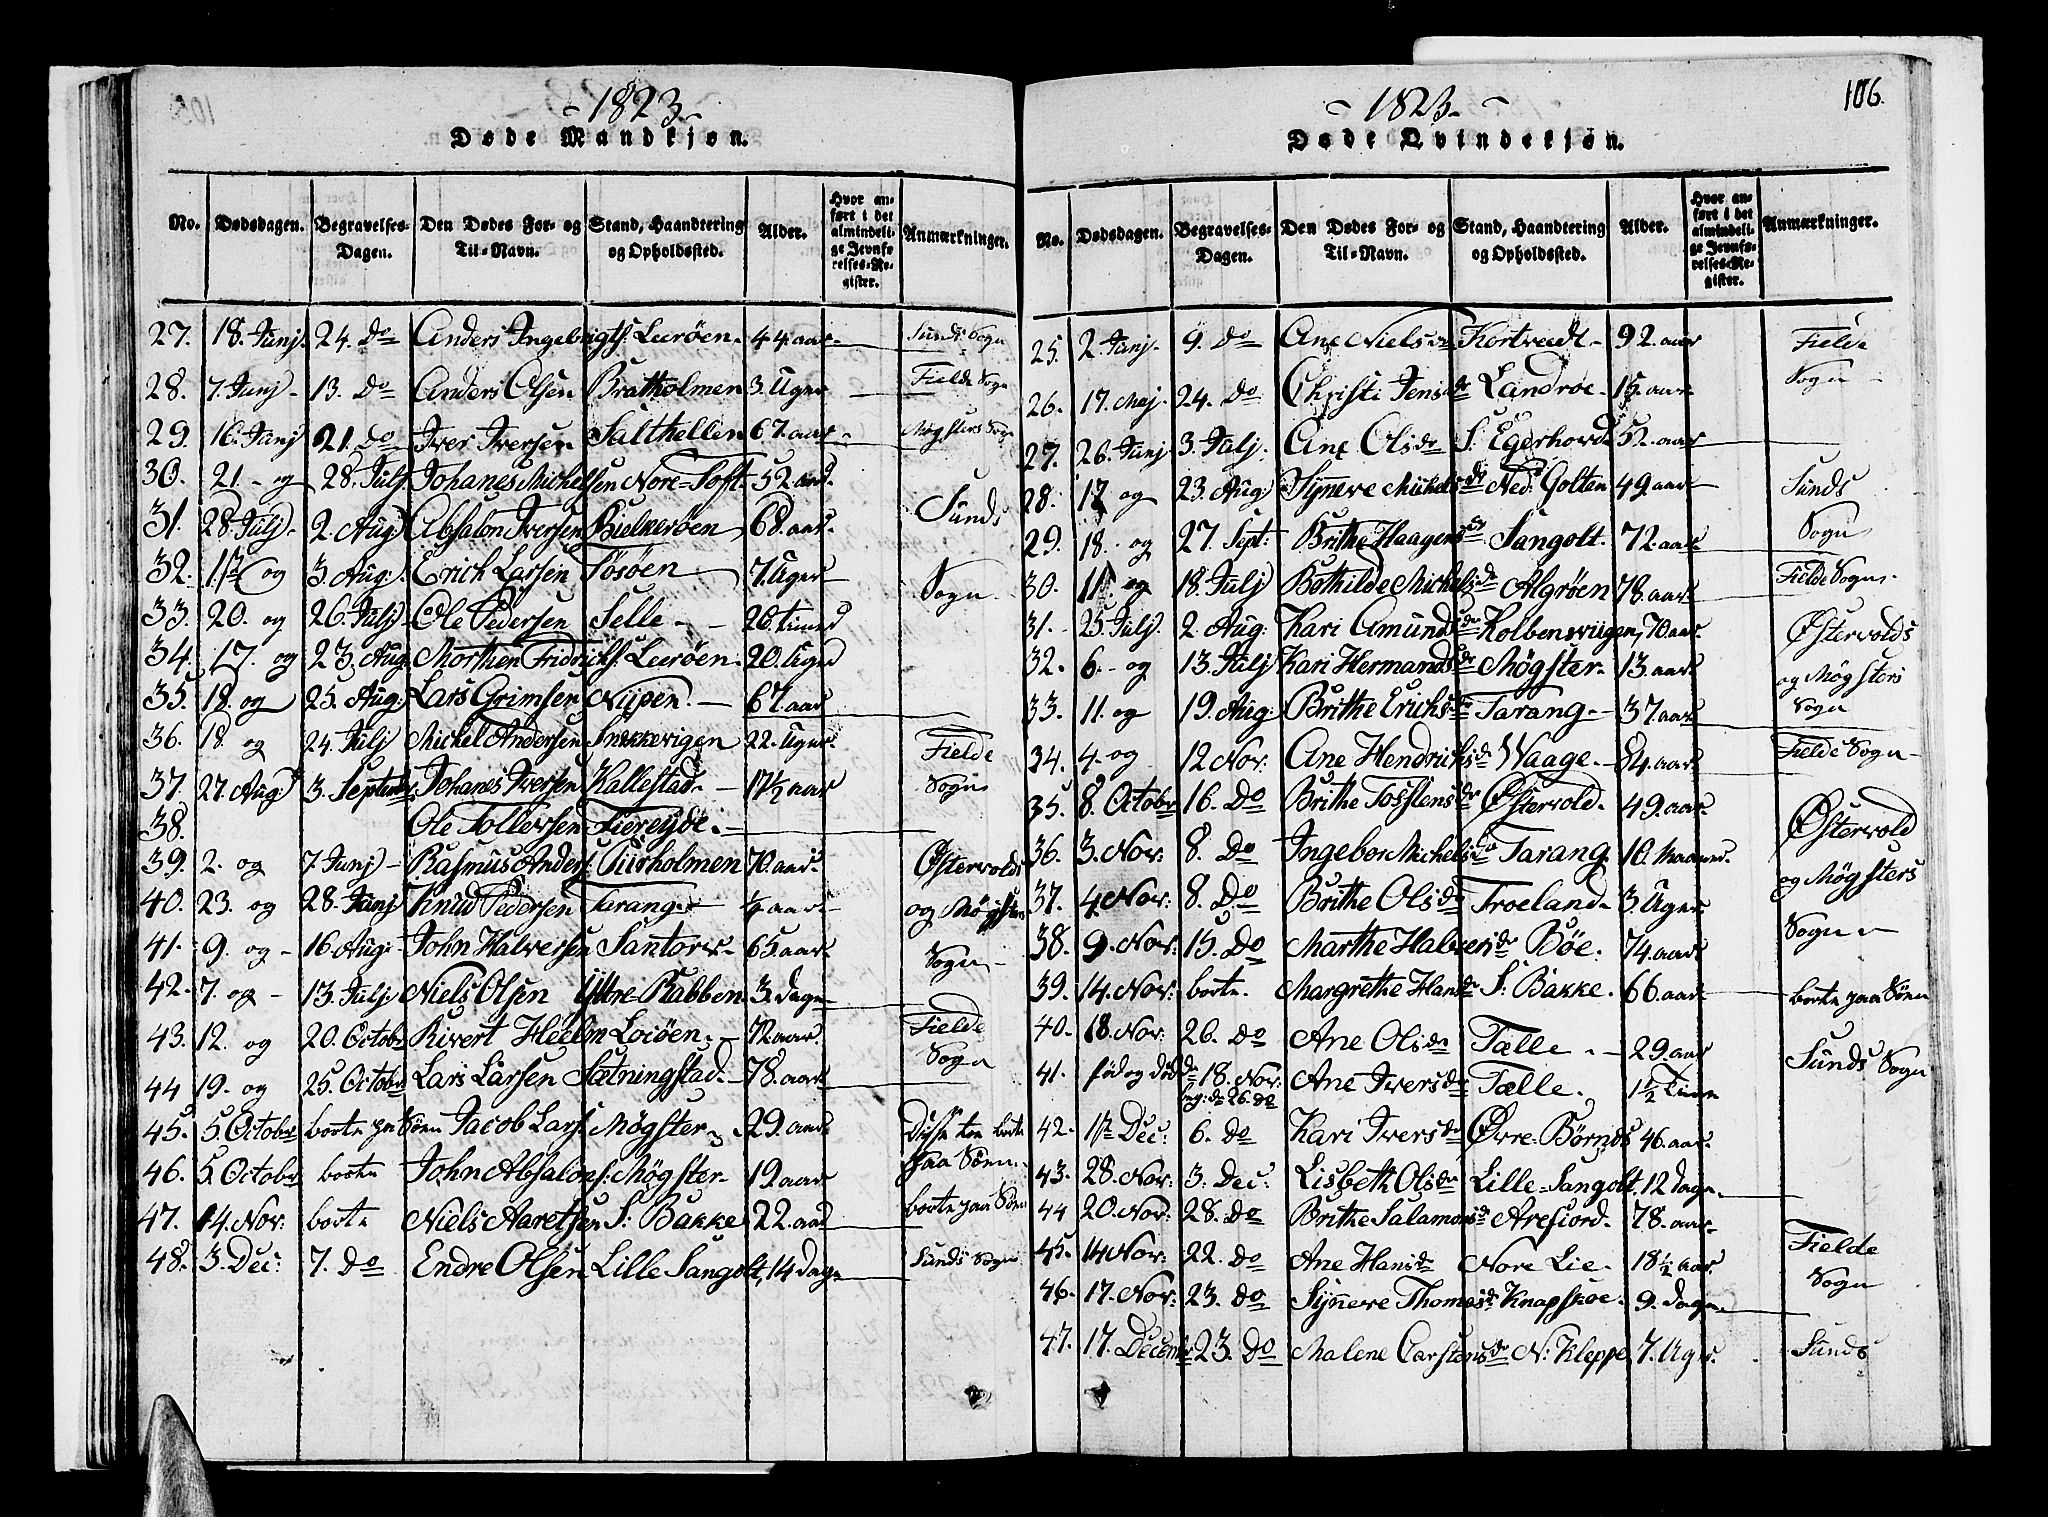 -1823-
Døde Mandkjøn.
No. Dødsdagen. Begravelses-Dagen. Den Dødes For- og Til-Navn. Stand, Haandtering og Opholdssted. Alder. Hvor anført i det almindelige Jevnførelses-Register. Anmærkninger.
27. 18. Junj. 24. Do Anders Ingebrigts. Leerøen. 44. aar Sunds Sogn
28. 7. Junj 13. Do Anders Olsen Bratholmen 3. Uger Fielde Sogn
29. 16. Junj 21. Do Iver Iversen Salthellen 67. aar Møgsters Sogn
30. 21. og 28. Julj Johanes Michelsen Nore-Toft 52. aar
31. 28. Julj 2. Aug Absalon Iversen Bielkerøen 68. aar Sunds
32. og 3 Aug: Erich Larsen Tøsøen 7. Uger Sogn.
33. 20. og 26. Julj Ole Pedersen Selle 26. timer
34. 17. og 23. Aug Morthen Fridrichs. Leerøen. 20. Uger
35. 18. og 25. Aug: Lars Grimsen Nipen. 67. aar
36. 18. og 24. Julj Michel Andersen Snekkevigen 22. Uger Fielde
37. 27. Aug 3. Septembr Johanes Iversen Kallestad 17½ aar Sogn
38. Ole Tollersen Fiereyde.
39. 2. og 7. Junj Rasmus Anders. Tiurholmen 70. aar Østervolds
40. 23. og 28. Junj Knud Pedersen Tarang aar og Møgsters
41. 9. og 16. Aug: John Halversen Santorv 65. aar Sogn
42. 7. og 13. Julj Niels Olsen Yttre-Rabben 3. Dage
43. 12. og 20. Octobr Rivert Heelm Loiøen. 72. aar Fielde
44 19. og 25. Octobr Lars Larsen Sætningstad. 78. aar Sogn
45. 5. Octobr borte paa Søen Jacob Lars. Møgster 29. aar Disse toe borte
46. 5. Octobr borte John Absalons. Møgster 19. aar paa Søen
47. 14. Nov: borte Niels Aaretsen S: Bakke 22. aar borte paa Søen
48. 3. Dec: 7. Do Endre Olsen Lille Sangolt, 14 Dage Sunds Sogn
-1823- 106.
Døde Qvindekjøn.
No. Dødsdagen. Begravelses-Dagen. Den Dødes For- og Til-Navn. Stand, Haandtering og Opholdssted. Alder. Hvor anført i det almindelige Jevnførelses-Register. Anmærkninger.
25. 2. Junj 9. Do Ane Nielsdr Kortvedt 92. aar Fielde
26. 17. Maj. 24. Do Christi Jensdr Landroe 15. aar Sogn
27. 26. Junj 3. Julj. Ane Olsdr S. Egerhovd 52. aar
28. 17 og 23. Aug Synneve Michelsdr Ned: Golten 49. aar Sunds
29. 18. og 27. Sept: Brithe Haagensdr Sangolt. 72. aar Sogn
30. 11. og 18. Julj Bothilde Michelsdr Algrøen 78. aar Fielde Sogn.
31. 25. Julj. 2. Aug: Kari Amundsdr Kolbensvigen, 70. aar Østervolds
32. 6. og 13. Julj Kari Hermandsdr Møgster 13. aar og Møgsters
33. 11. og 19. Aug: Brithe Erichsdr Tarang 37. aar Sogn
34. 4. og 12 Nov. Ane Hendrichsdr Waage. 84. aar Fielde Sogn
35. 8. Octobr 16. Do Brithe Tostensdr Østervold. 49. aar Østervold
36. 3. Nov: 8. Do Ingebor Michelsdr Tarang 10. Maaneder og Møgsters
37. 4. Nov: 8. Do Brithe Olsdr Troeland 3. Uger Sogn
38. 9. Nov. 15. Do Marthe Halversdr Bøe. 74. aar
39. 14. Nov: borte. Margrethe Hansdr S: Bakke. 66. aar borte paa Søen
40. 18. Nov: 26. Do Ane Olsdr Tælle. 29. aar Sunds Sogn
41. fød og død d. 18. Nov. og: d. 26. Do Ane Iversdr Tælle. 1½ Time
42. Dec: 6. Do Kari Iversdr Øvre-Børnes 46. aar
43. 28. Nov. 3. Dec: Lisbeth Olsdr Lille-Sangolt. 12 Dage
44 20. Nov: 28. Do Brithe Salamonsdr Arefiord. 78. aar
45. 14 Nov: 22. Do Ane Hansdr Nore Lie 18½ aar. Fielde
46. 17. Nov: 23. Do Synneve Thomasdr Knapskoe 9. Dage Sogn
47. 17. Decembr 23. Do Malene Carstensdr N: Kleppe, 7. Uger. Sunds